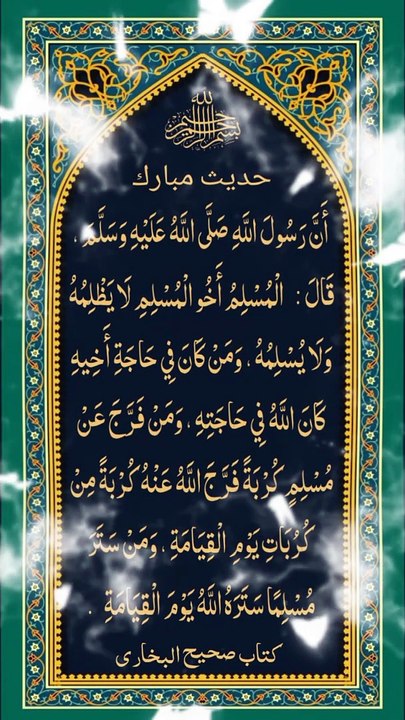 بسم الله الرحمن الرحيم
حديث مبارك
أَنَّ رَسُولَ اللَّهِ صَلَّى اللَّهُ عَلَيْهِ وَسَلَّمَ ،
قَالَ : الْمُسْلِمُ أَخُو الْمُسْلِمِ لَا يَظْلِمُهُ
وَلَا يُسْلِمُهُ ، وَمَنْ كَانَ فِي حَاجَةِ أَخِيهِ
كَانَ اللَّهُ فِي حَاجَتِهِ ، وَمَنْ فَرَّجَ عَنْ
مُسْلِمٍ كُرْبَةً فَرَّجَ اللَّهُ عَنْهُ كُرْبَةً مِنْ
كُرُبَاتِ يَوْمِ الْقِيَامَةِ ، وَمَنْ سَتَرَ
مُسْلِمًا سَتَرَهُ اللَّهُ يَوْمَ الْقِيَامَةِ .
كتاب صحيح البخارى